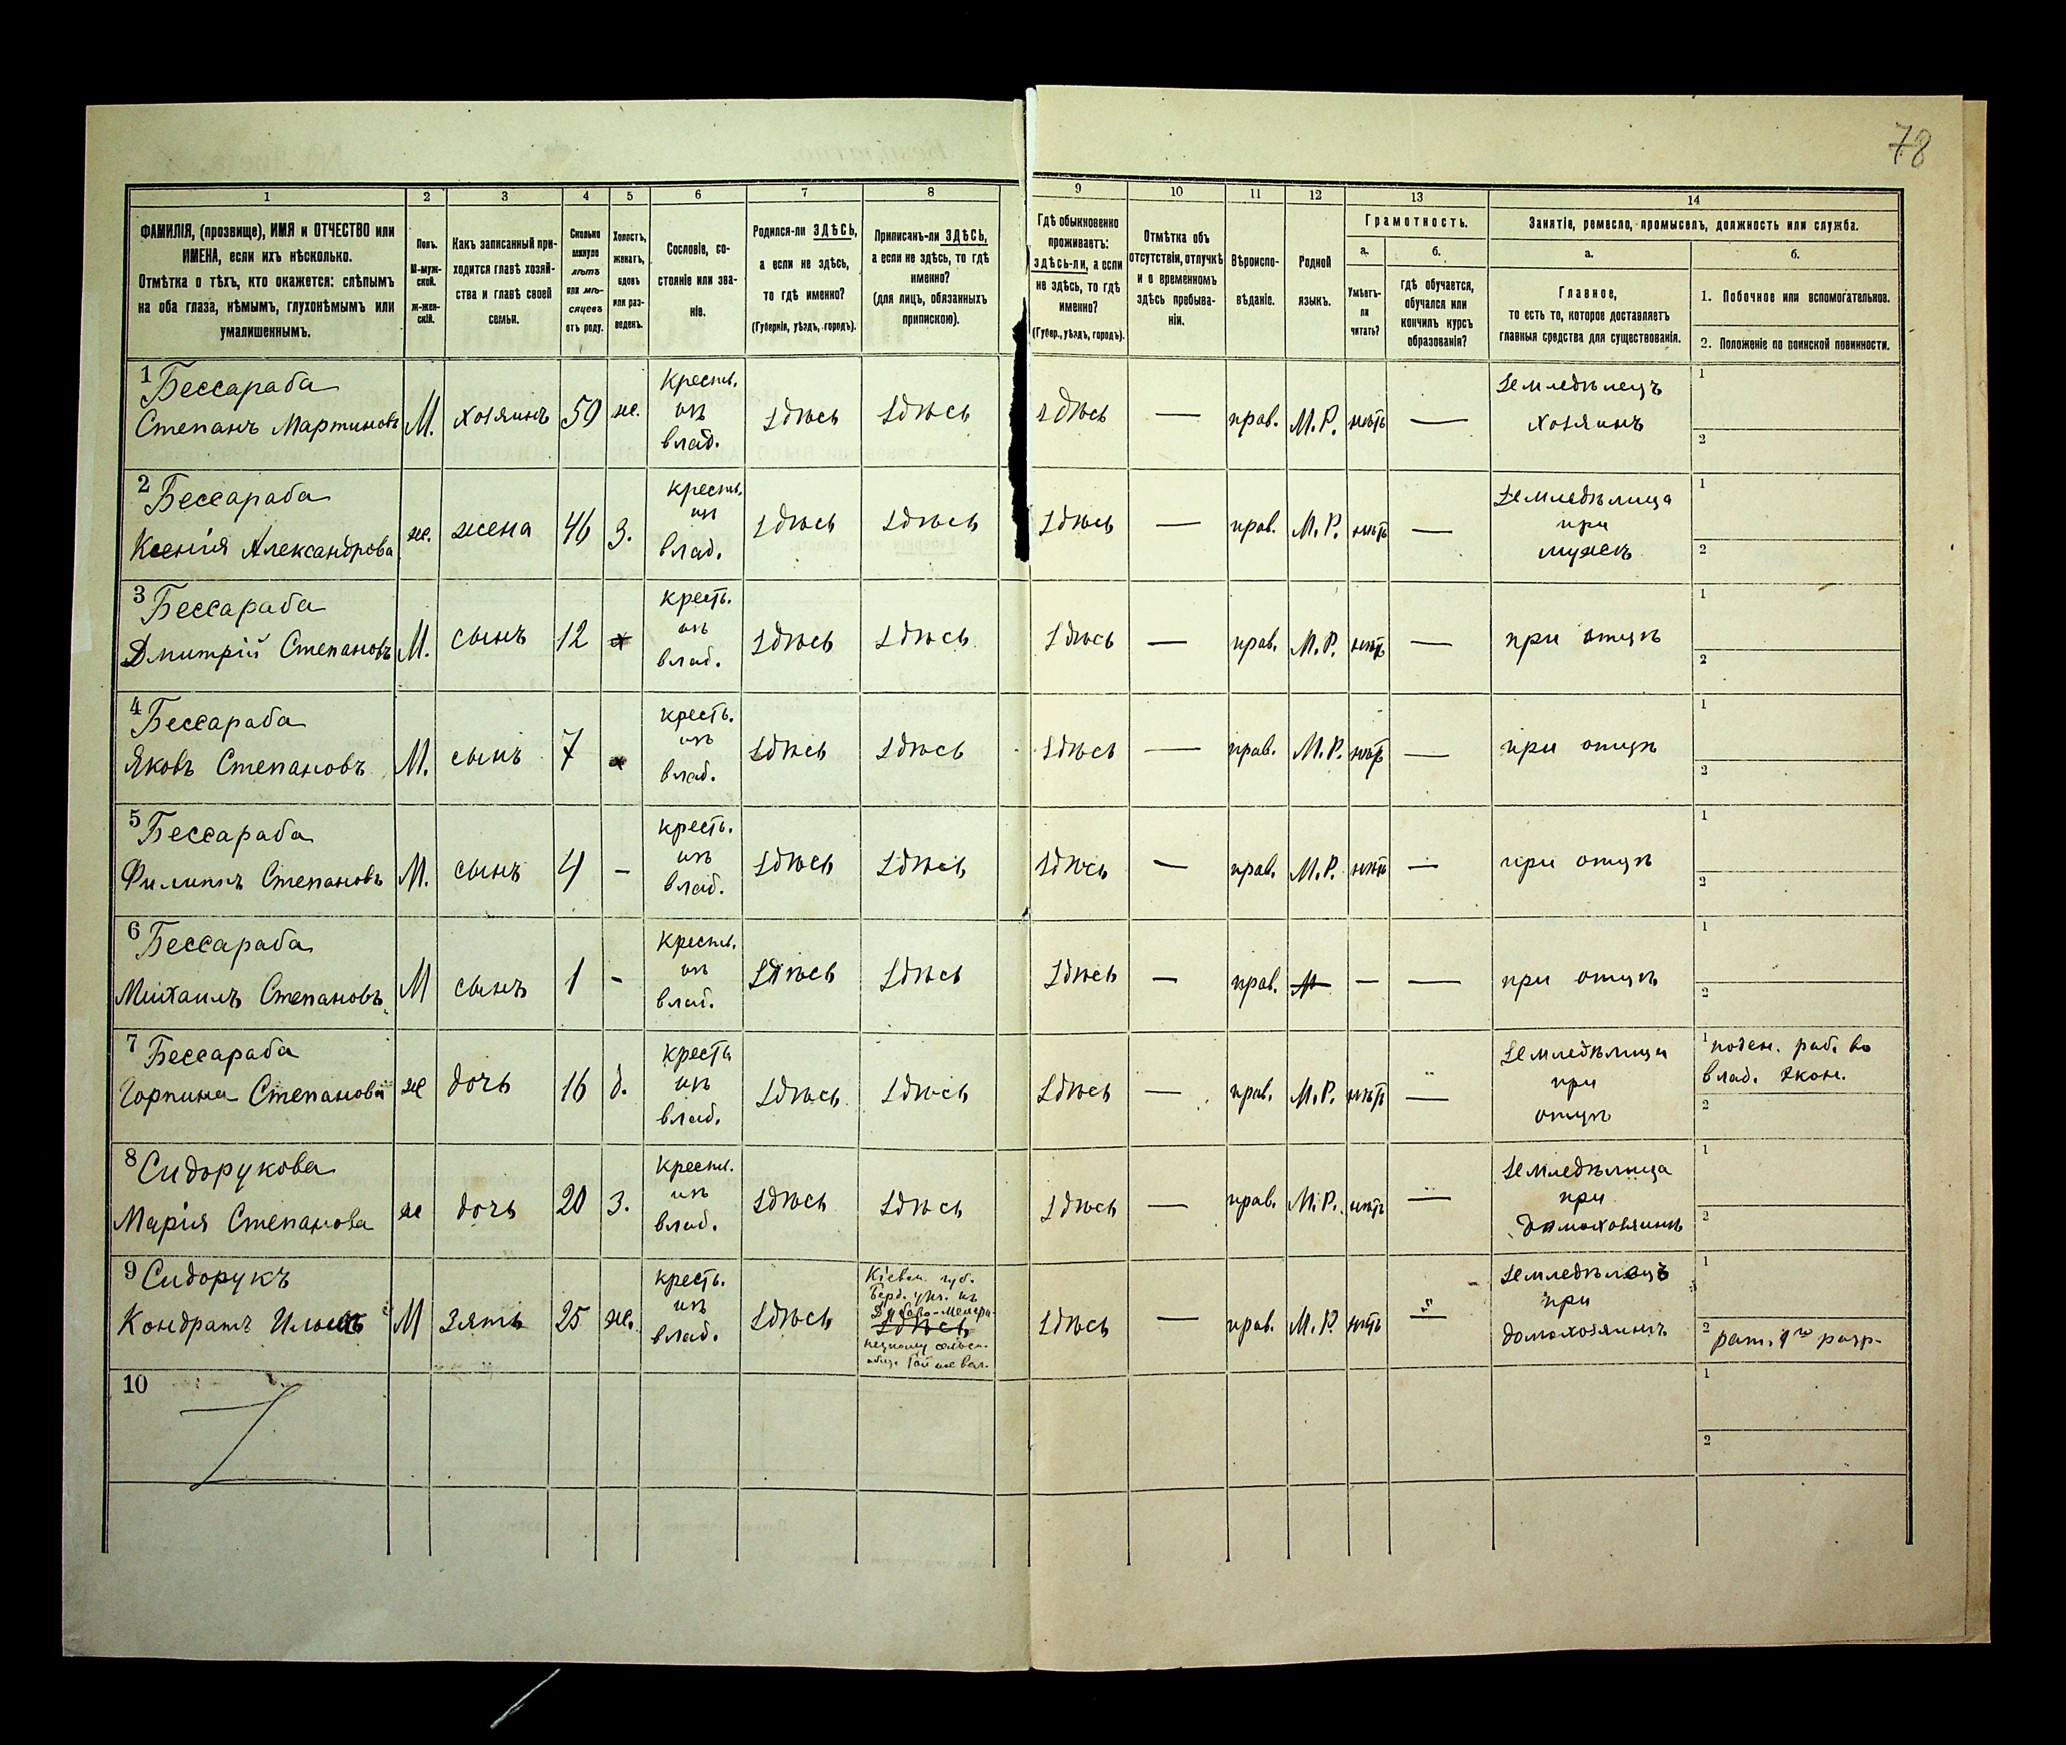 78
1 2 3 4 5 6 7 8 9 10 11 12 13 14
ФАМИЛІЯ, (прозвище), ИМЯ и ОТЧЕСТВО или
ИМЕНА, если ихъ нѣсколько.
Отмѣтка о тѣхъ, кто окажется: слѣпымъ
на оба глаза, нѣмымъ, глухонѣмымъ или
умалишеннымъ.
Полъ.
М-муж-
ской.
Ж-жен-
скій.
Какъ записанный при-
ходится главѣ хозяй-
ства и главѣ своей
семьи.
Сколько
минуло
лѣтъ
или мѣ-
сяцевъ
отъ роду.
Холостъ,
женатъ,
вдовъ
или раз-
веденъ.
Сословіе, со-
стояніе или зва-
ніе.
Родился-ли ЗДѢСЬ,
а если не здѣсь,
то гдѣ именно?
(Губернія, уѣздъ, городъ).
Приписанъ-ли ЗДѢСЬ,
а если не здѣсь, то гдѣ
именно?
(для лицъ, обязанныхъ
припискою).
Гдѣ обыкновенно
проживаетъ:
ЗДѢСЬ-ЛИ, а если
не здѣсь, то гдѣ
именно?
(Губер., уѣздъ, городъ).
Отмѣтка объ
отсутствіи, отлучкѣ
и о временномъ
здѣсь пребыва-
ніи.
Вѣроиспо-
вѣданіе.
Родной
языкъ.
Грамотность.
а.
Умѣетъ-
ли
читать?
б.
гдѣ обучается,
обучался или
кончилъ курсъ
образованія?
Занятіе, ремесло, промыселъ, должность или служба.
а.
Главное,
то есть то, которое доставляетъ
главныя средства для существованія.
б.
1. Побочное или вспомогательное.
2. Положеніе по воинской повинности.
1 Бессараба
Степанъ Мартиновъ М. хозяинъ 50 же. крестъ. изъ влад. здѣсь здѣсь здѣсь — прав. М.Р. нѣтъ — Земледѣлецъ хозяинъ 1 2
2 Бессараба
Ксенія Александрова же. жена 46 з. крестъ. изъ влад. здѣсь здѣсь здѣсь — прав. М.Р. нѣтъ — Земледѣлица при мужѣ 1 2
3 Бессараба
Дмитрій Степановъ М. сынъ 12 х крестъ. изъ влад. здѣсь здѣсь здѣсь — прав. М.Р. нѣтъ — при отцѣ 1 2
4 Бессараба
Яковъ Степановъ М. сынъ 7 х крестъ. изъ влад. здѣсь здѣсь здѣсь — прав. М.Р. нѣтъ — при отцѣ 1 2
5 Бессараба
Филиппъ Степановъ М. сынъ 4 – крестъ. изъ влад. здѣсь здѣсь здѣсь — прав. М.Р. нѣтъ — при отцѣ 1 2
6 Бессараба
Михаилъ Степановъ М сынъ 1 – крестъ. изъ влад. здѣсь здѣсь здѣсь — прав. М — — при отцѣ 1 2
7 Бессараба
Горпина Степанова же дочь 16 д. крестъ изъ влад. здѣсь здѣсь здѣсь — прав. М.Р. нѣтъ — Земледѣлица при отцѣ 1 поден. раб. во влад. экон. 2
8 Сидорукова
Марія Степанова же дочь 20 з. крестъ. изъ влад. здѣсь здѣсь здѣсь — прав. М.Р. нѣтъ — Земледѣлица при домохозяинѣ 1 2
9 Сидорукъ
Кондратъ М зять 25 же. крестъ. изъ влад. здѣсь Кіевск. губ. Берд. уѣз. здѣсь здѣсь — прав. М.Р. нѣтъ — Земледѣлецъ при домохозяинѣ 1 2 рат. 1го разр.
10 1 2